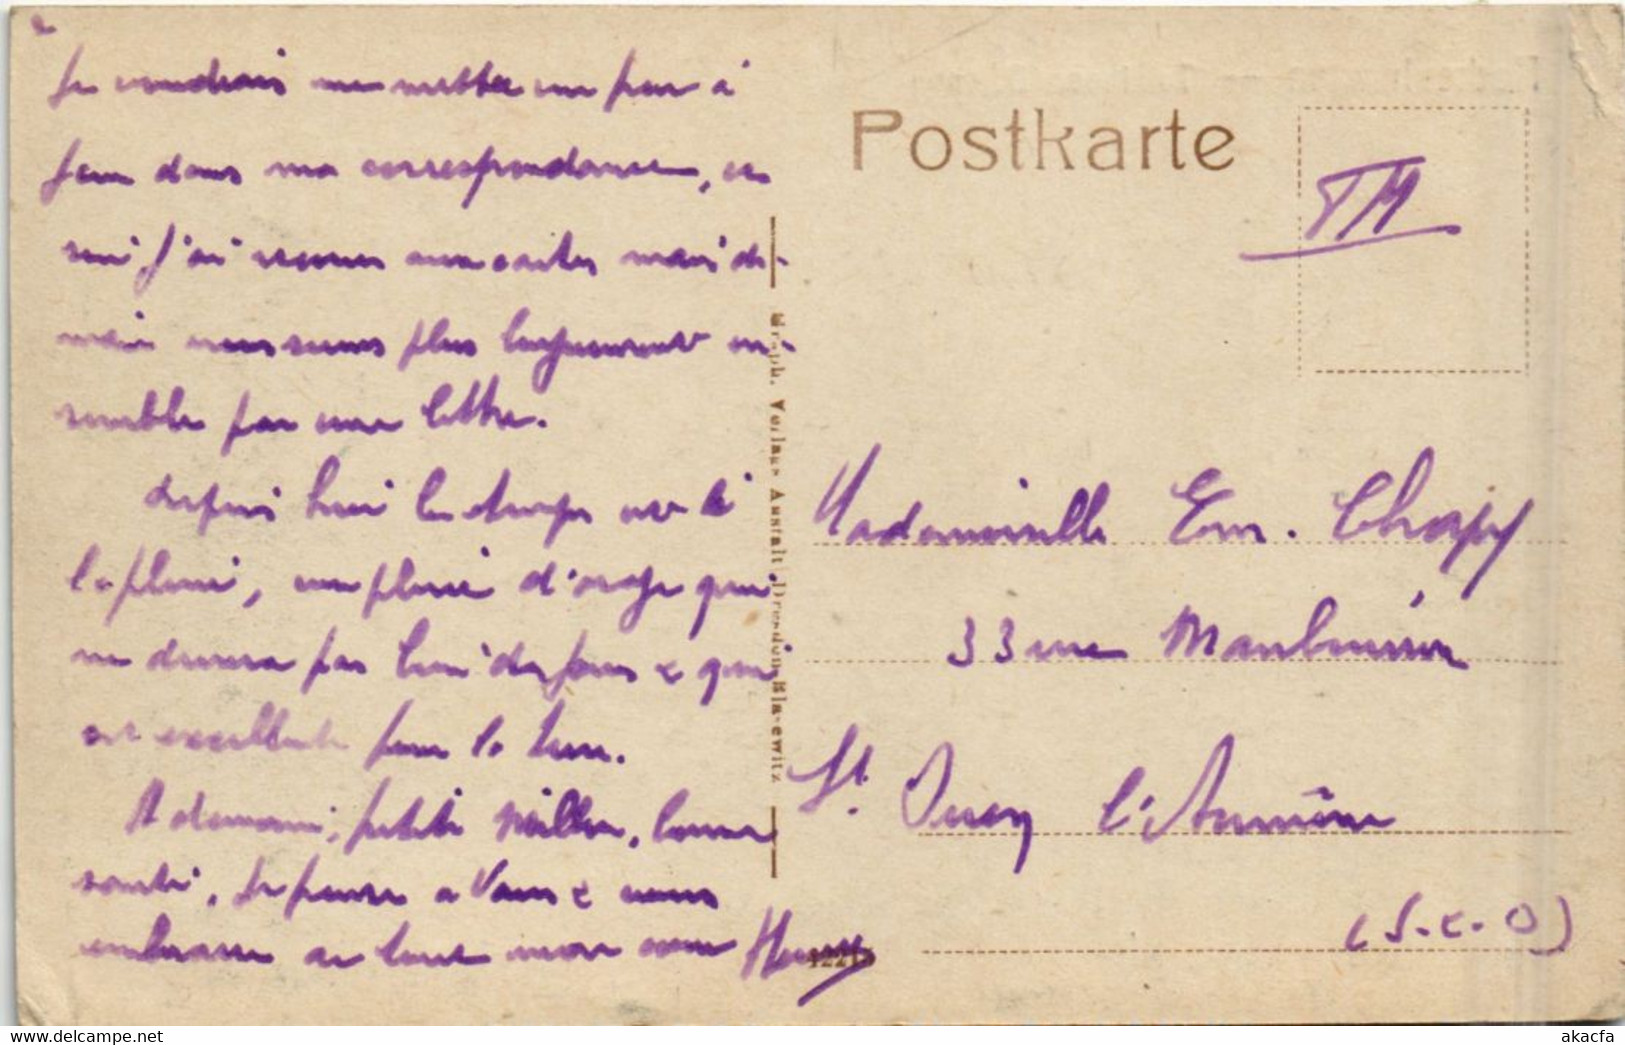 Je voudrais me mettre un peu à
jour dans ma correspondance, ce
soir j'ai recours aux cartes mais de-
main nous serons plus longuement en-
semble par une lettre.
depuis hier le temps est à
la pluie, une pluie d'orage qui
ne durera pas bien des jours & qui
est excellente pour la terre.
A demain, petite Vieille, bonne
santé. Je pense a Vous & vous
embrasse de tout mon cœur Henry
Postkarte
FM
Graph. Verlags-Anstalt, Dresden-Blasewitz
Mademoiselle Em. Chapy
33 rue Maubuisson
St. Ouen l'Aumône
(S.-&-O)
akacfa